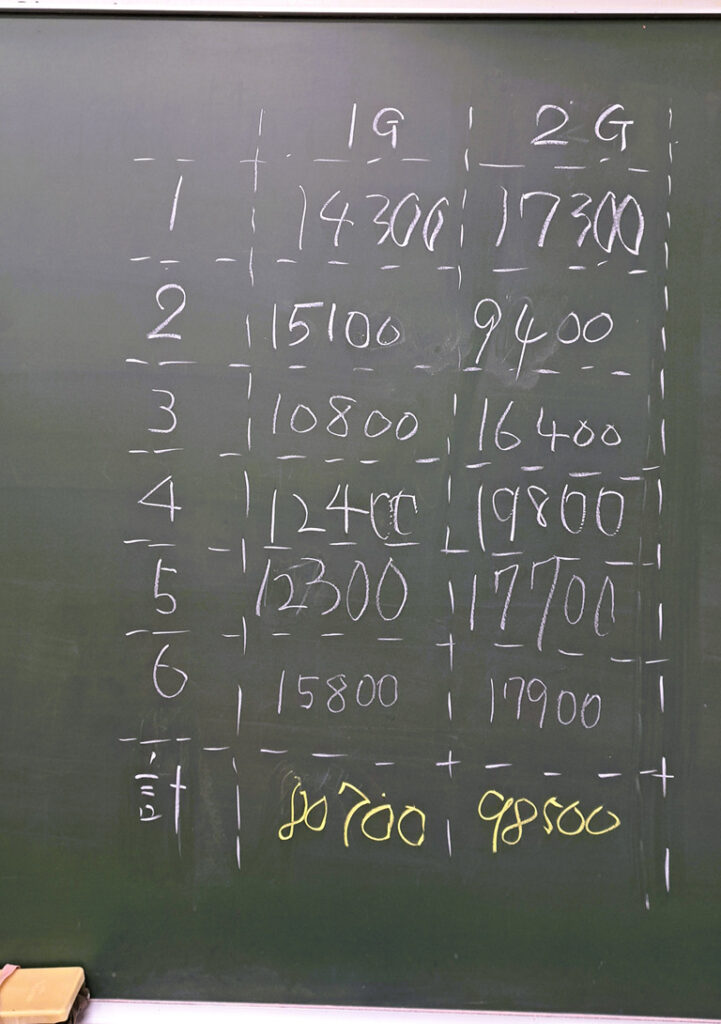 1G 2G
1 14300 17300
2 15100 9400
3 10800 16400
4 12400 19800
5 12300 17700
6 15800 17900
計 80700 98500